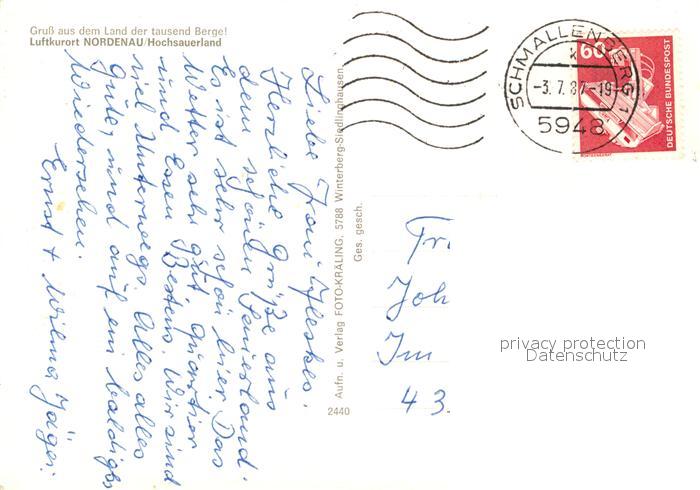 Gruß aus dem Land der tausend Berge!
Luftkurort NORDENAU/Hochsauerland
Herzliche Grüße aus
dem schönen Sauerland.
Es ist sehr schön hier. Das
Wetter sehr gut Quartier
und Essen Bestens. Wir sind
viel Unterwegs. Alles alles
Gute, und auf ein baldiges
Wiedersehen.
Ernst + Wilma Jäger.
Aufn. u. Verlag FOTO-KRÄLING, 5788 Winterberg-Siedlinghausen
Ges. gesch.
2440
SCHMALLENBERG 1
-3.7.87-19
5948
60
DEUTSCHE BUNDESPOST
Fr.
Joh
Im
43.
privacy protection
Datenschutz